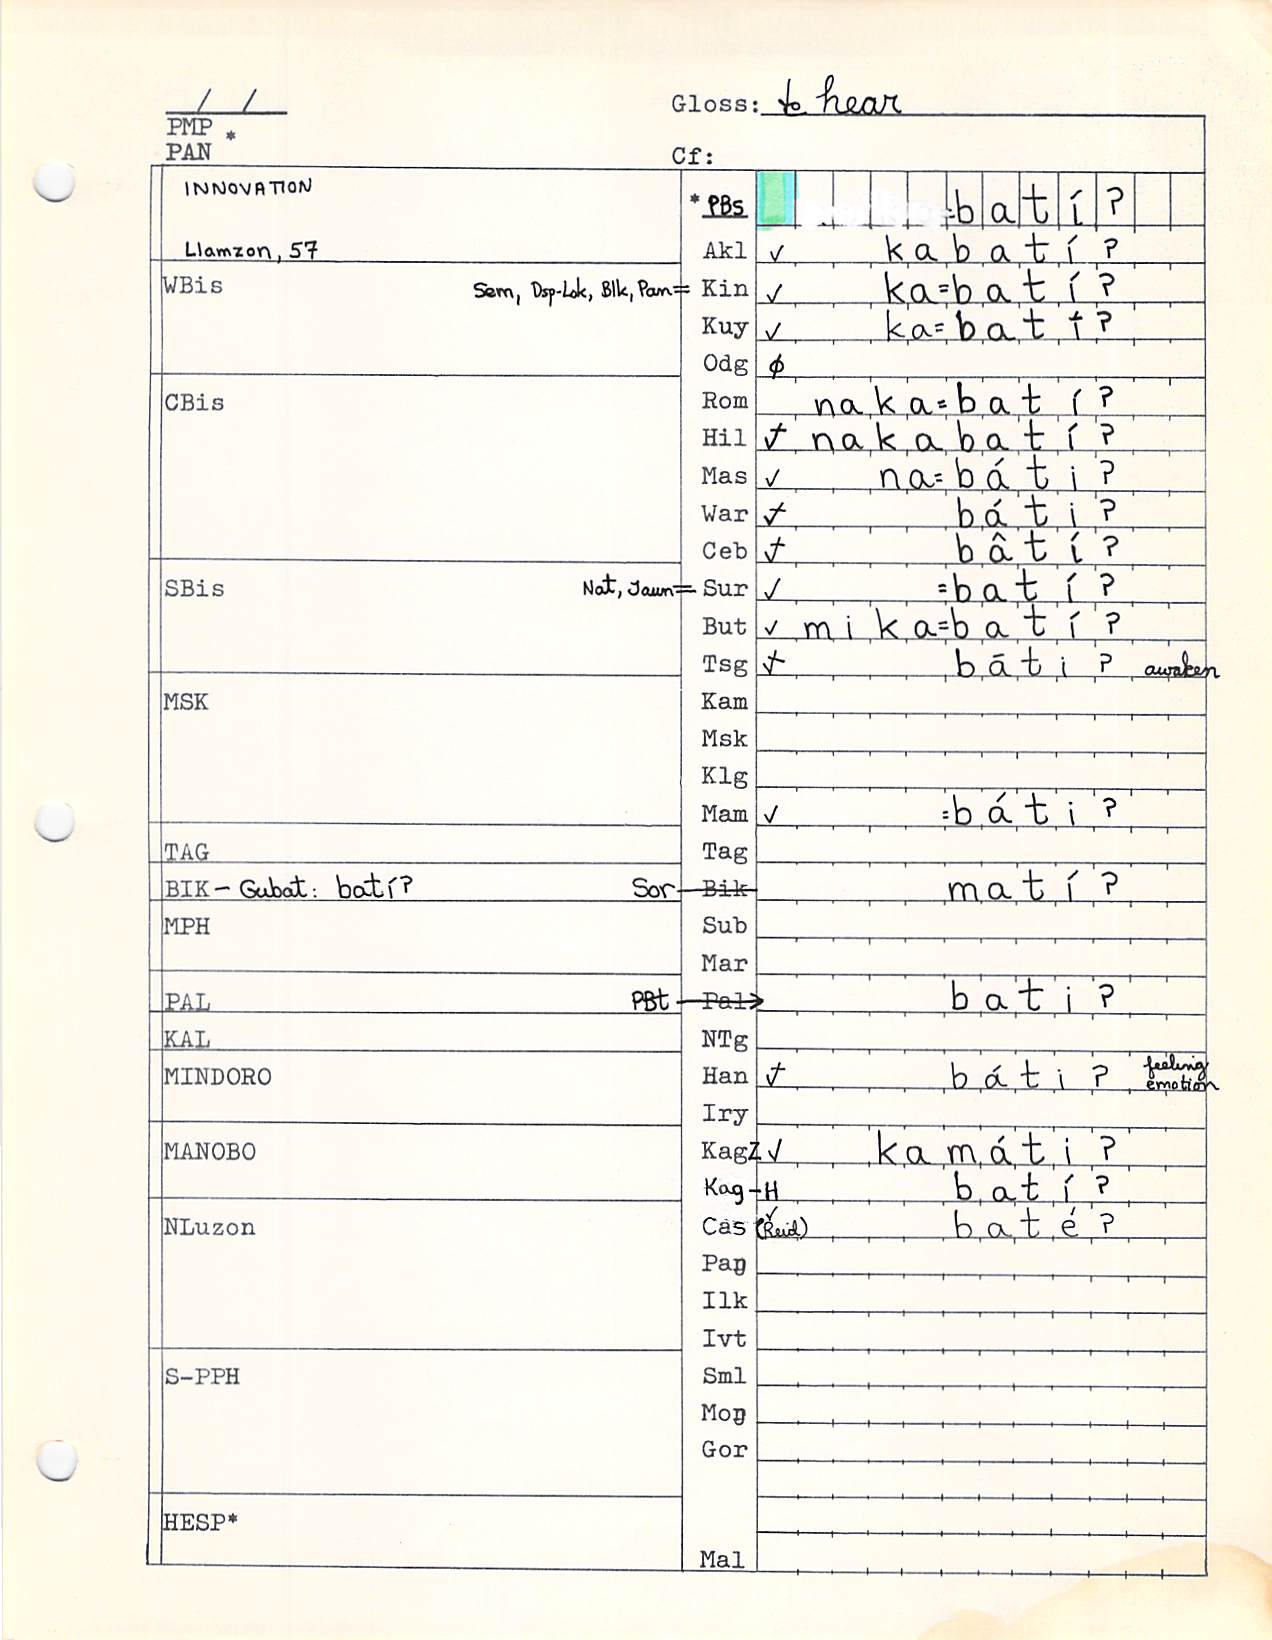 / /
Gloss: to hear
PMP
PAN *
Cf:
INNOVATION
*PBs =batíʔ
Llamzon, 57
Akl ✓ kabatíʔ
WBis Sem, Dsp-Lok, Blk, Pan= Kin ✓ ka=batíʔ
Kuy ✓ ka=batíʔ
Odg ϕ
CBis Rom naka=batíʔ
Hil ✓ nakabatíʔ
Mas ✓ na=bátiʔ
War ✓ bátiʔ
Ceb ✓ bâtíʔ
SBis Nat, Jaun= Sur ✓ =batíʔ
But ✓ mika=batíʔ
Tsg ✓ bātiʔ awaken
MSK Kam
Msk
Klg
Mam ✓ =bátiʔ
TAG Tag
BIK – Gubat: batíʔ Sor Bik matíʔ
MPH Sub
Mar
PAL PBt Pal batiʔ
KAL NTg
MINDORO Han ✓ bátiʔ feeling emotion
Iry
MANOBO KagZ ✓ kamátiʔ
Kag-H batíʔ
NLuzon Cas (Reid) ✓ batéʔ
Paŋ
Ilk
Ivt
S-PPH Sml
Moŋ
Gor
HESP*
Mal